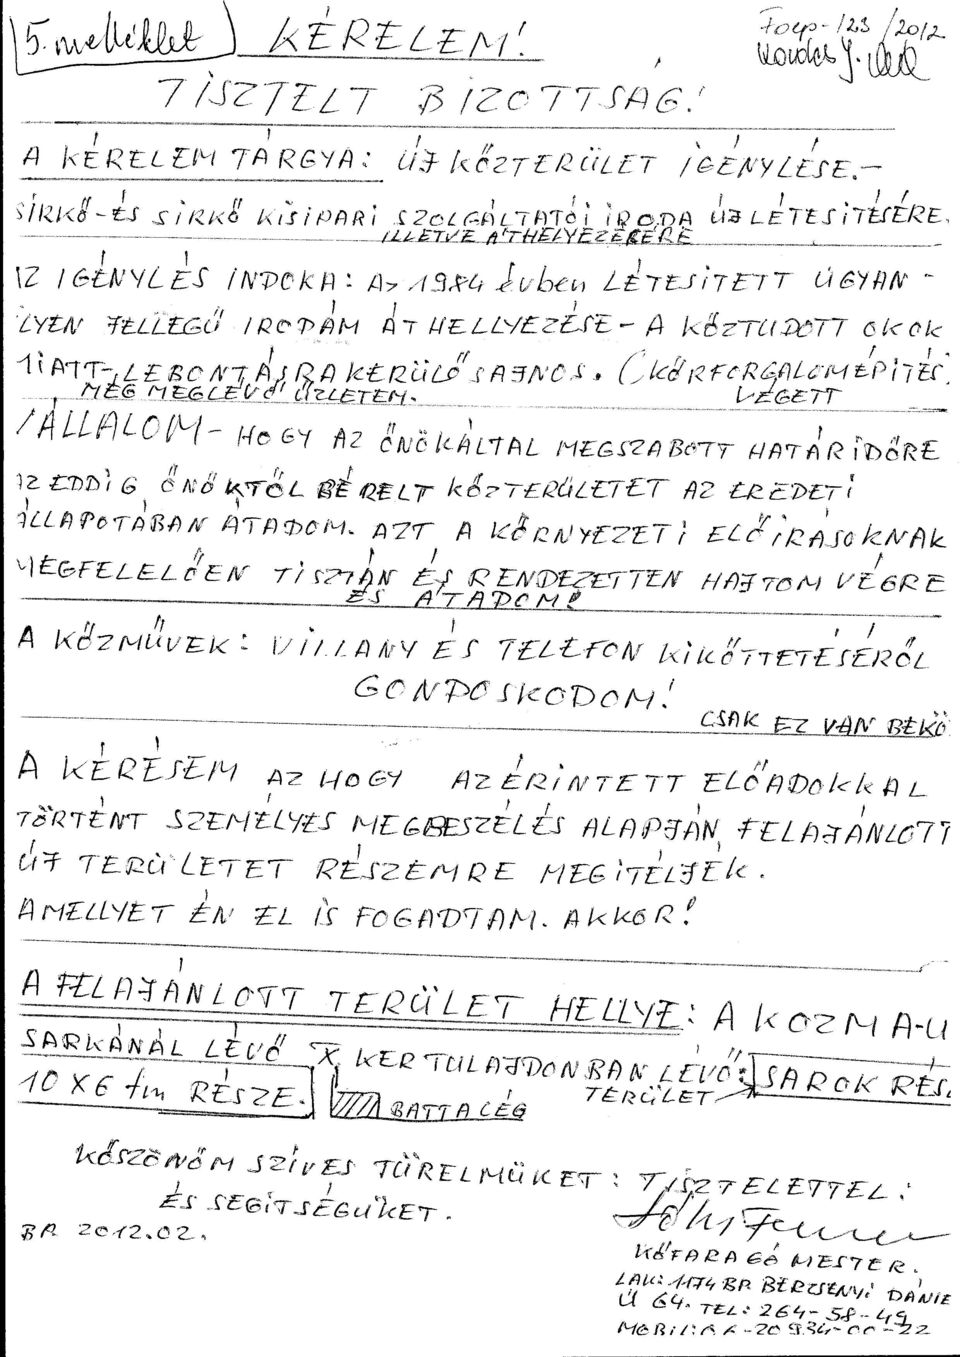 5. melléklet
KÉRELEM!
Foép-123/2012
TISZTELT BIZOTTSÁG!
A KÉRELEM TÁRGYA: ÚJ KÖZTERÜLET IGÉNYLÉSE.-
SÍRKŐ-ÉS SÍRKŐ KISIPARI SZOLGÁLTATÓI IRODA ÚJ LÉTESITÉSÉRE.
ILLETVE ÁTHELYEZÉSÉRE
IZ IGÉNYLÉS INDOKA: AZ 1984 évben LÉTESÍTETT UGYAN-
ILYEN JELLEGŰ IRODÁM ÁTHELLYEZÉSE - A KÖZTUDOTT OKOK
MIATT-, LEBONTÁSRA KERÜLŐ SAJNOS. (KÖRFORGALOMÉPÍTÉS.
MÉG MEGLÉVŐ ÜZLETEM. VÉGETT
VÁLLALOM - HOGY AZ ÖNÖKÁLTAL MEGSZABOTT HATÁRIDŐRE
IZ EDDIG ÖNÖKTŐL BÉRELT KÖZTERÜLETET AZ EREDETI
ÁLLAPOTÁBAN ÁTADOM. AZT A KÖRNYEZETI ELŐÍRÁSOKNAK
MEGFELELŐEN TISZTÁN ÉS RENDEZETTEN HAJTOM VÉGRE
ÉS ÁTADOM!
A KÖZMŰVEK: VILLANY ÉS TELEFON KIKÖTTETÉSÉRŐL
GONDOSKODOM!
CSAK EZ VAN BEKÖ
A KÉRÉSEM AZ HOGY AZ ÉRINTETT ELŐADOKKAL
TÖRTÉNT SZEMÉLYES MEGBESZÉLÉS ALAPJÁN, FELAJÁNLOTT
ÚJ TERÜLETET RÉSZEMRE MEGITÉLJÉK.
AMELLYET ÉN EL IS FOGADTAM. AKKOR!
A FELAJÁNLOTT TERÜLET HELLYE: A KOZMA-U
SARKÁNÁL LÉVŐ X. KER TULAJDONBAN LÉVŐ: SAROK RÉS
10 X 6 fm RÉSZE. BATTA CÉG TERÜLET
KÖSZÖNÖM SZÍVES TÜRELMÜKET: TISZTELETTEL:
ÉS SEGÍTSÉGÜKET.
BP 2012.02.
KŐFARAGÓ MESTER.
LAK: 1174 BP. BERCSÉNYI DÁNIE
Ú 64. TEL: 264-58-49
MOBIL: 06-20 934-00-22